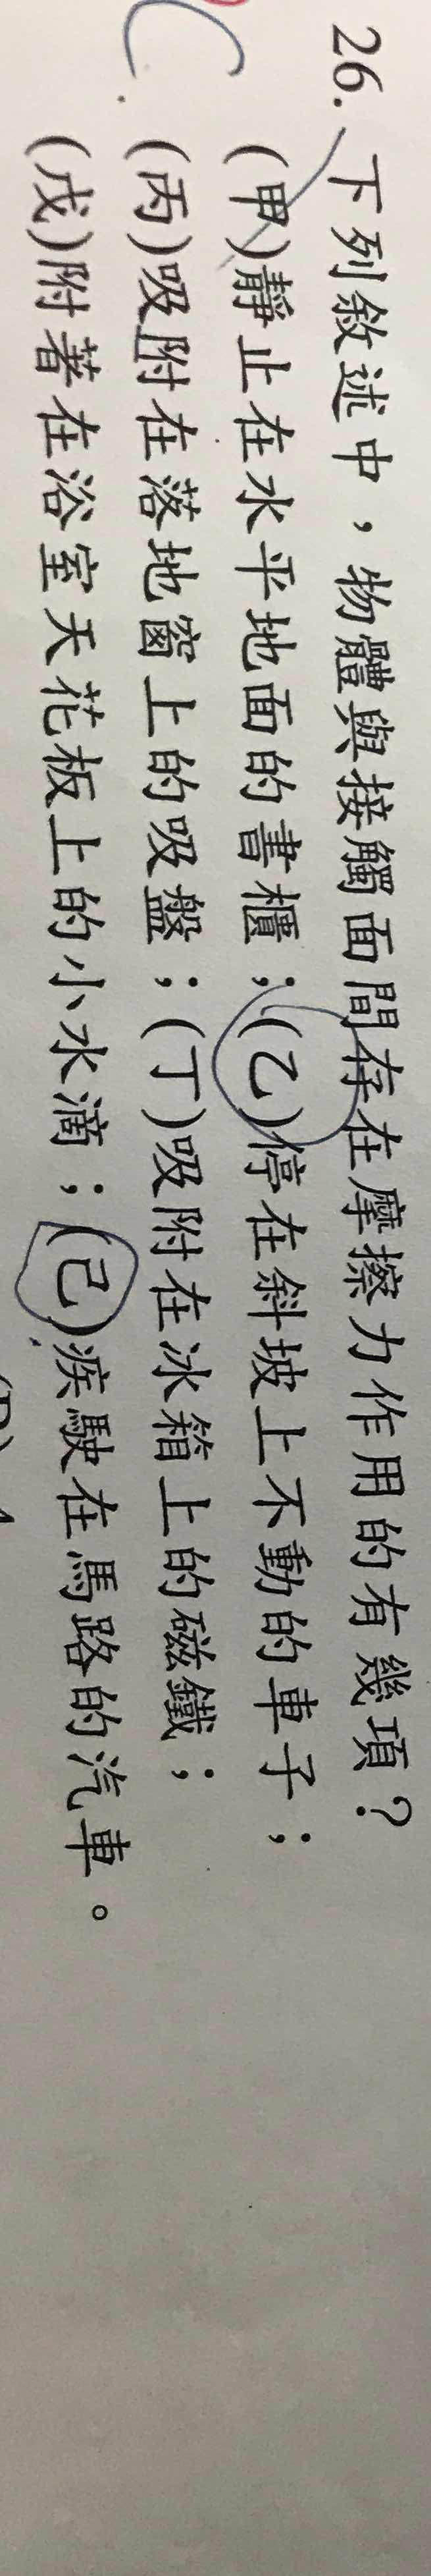 26. 下列敘述中，物體與接觸面間存在摩擦力作用的有幾項？
(甲)靜止在水平地面的書櫃；(乙)停在斜坡上不動的車子；
(丙)吸附在落地窗上的吸盤；(丁)吸附在冰箱上的磁鐵；
(戊)附著在浴室天花板上的小水滴；(己)疾駛在馬路的汽車。